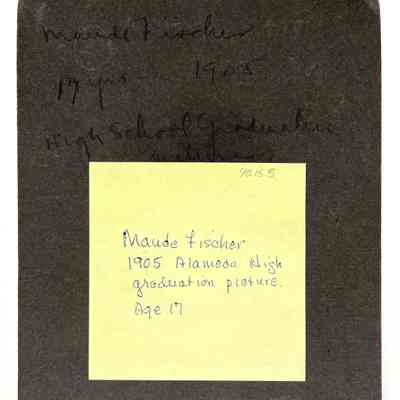 Maude Fischer
17 yrs 1905
High School Graduation
Maude Fischer
1905 Alameda High
graduation picture.
Age 17